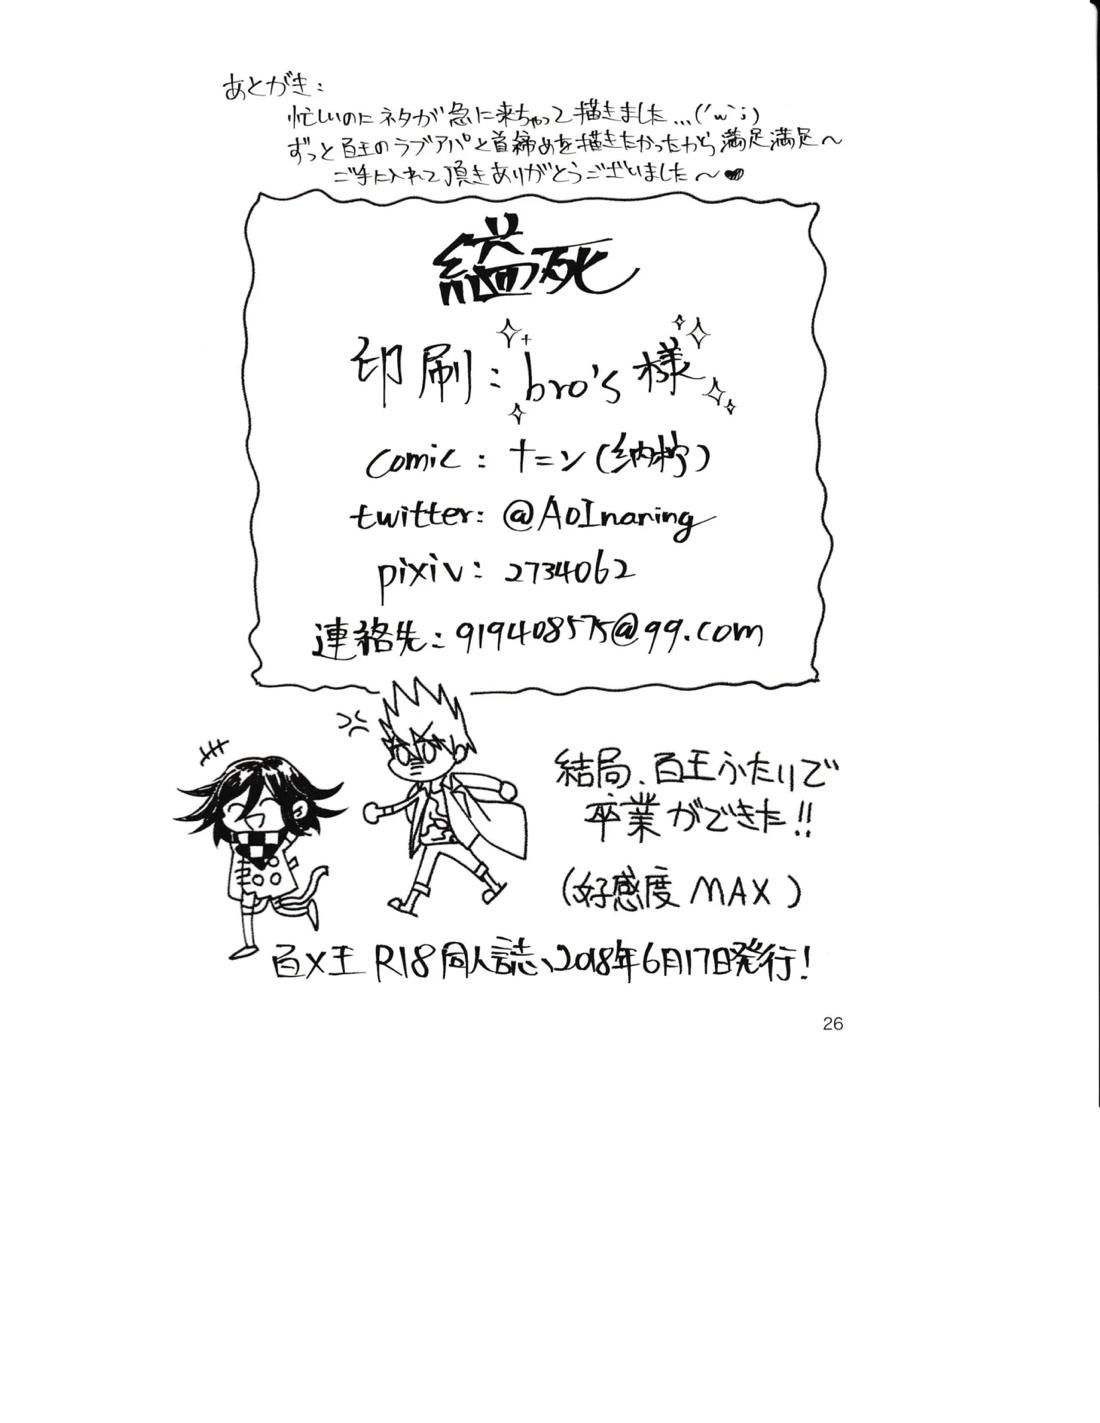 あとがき:
忙しいのにネタが急に来ちゃって描きました...(´ω`;)
ずっと百王のラブアパと首締めを描きたかったから満足満足~
ご手に入れて頂きありがとうございました~♥
縊死
印刷:bro's様
comic:ナニン(纳柠)
twitter:@AoInaning
pixiv:2734062
連絡先:919408575@qq.com
結局、百王ふたりで
卒業ができた!!
(好感度MAX)
百×王 R18同人誌、2018年6月17日発行!
26